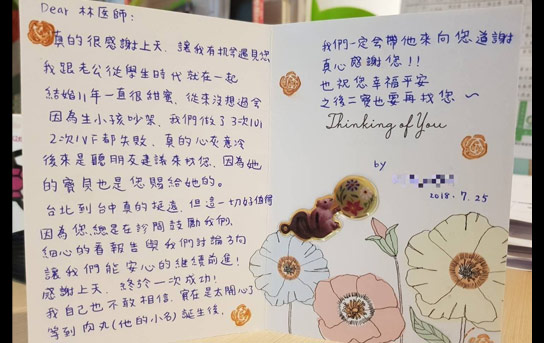 Dear 林医師:
真的很感謝上天、讓我有机會遇見您
我跟老公從學生時代就在一起
結婚11年一直很甜蜜、從來沒想過会
因為生小孩吵架、我們做了3次IUI
2次IVF都失敗、真的心灰意冷
後來是聽朋友建議來找您、因為她
的寶貝也是您賜給她的。
台北到台中真的挺遠、但這一切好值得
因為您總是在診間鼓勵我們、
細心的看報告與我們討論方向
讓我們能安心的繼續前進!
感謝上天、終於一次成功!
我自己也不敢相信、實在是太開心了
等到肉丸(他的小名)誕生後,
我們一定会帶他來向您道謝
真心感謝您!!
也祝您幸福平安
之後二寶也要再找您~
Thinking of You
by
2018.7.25